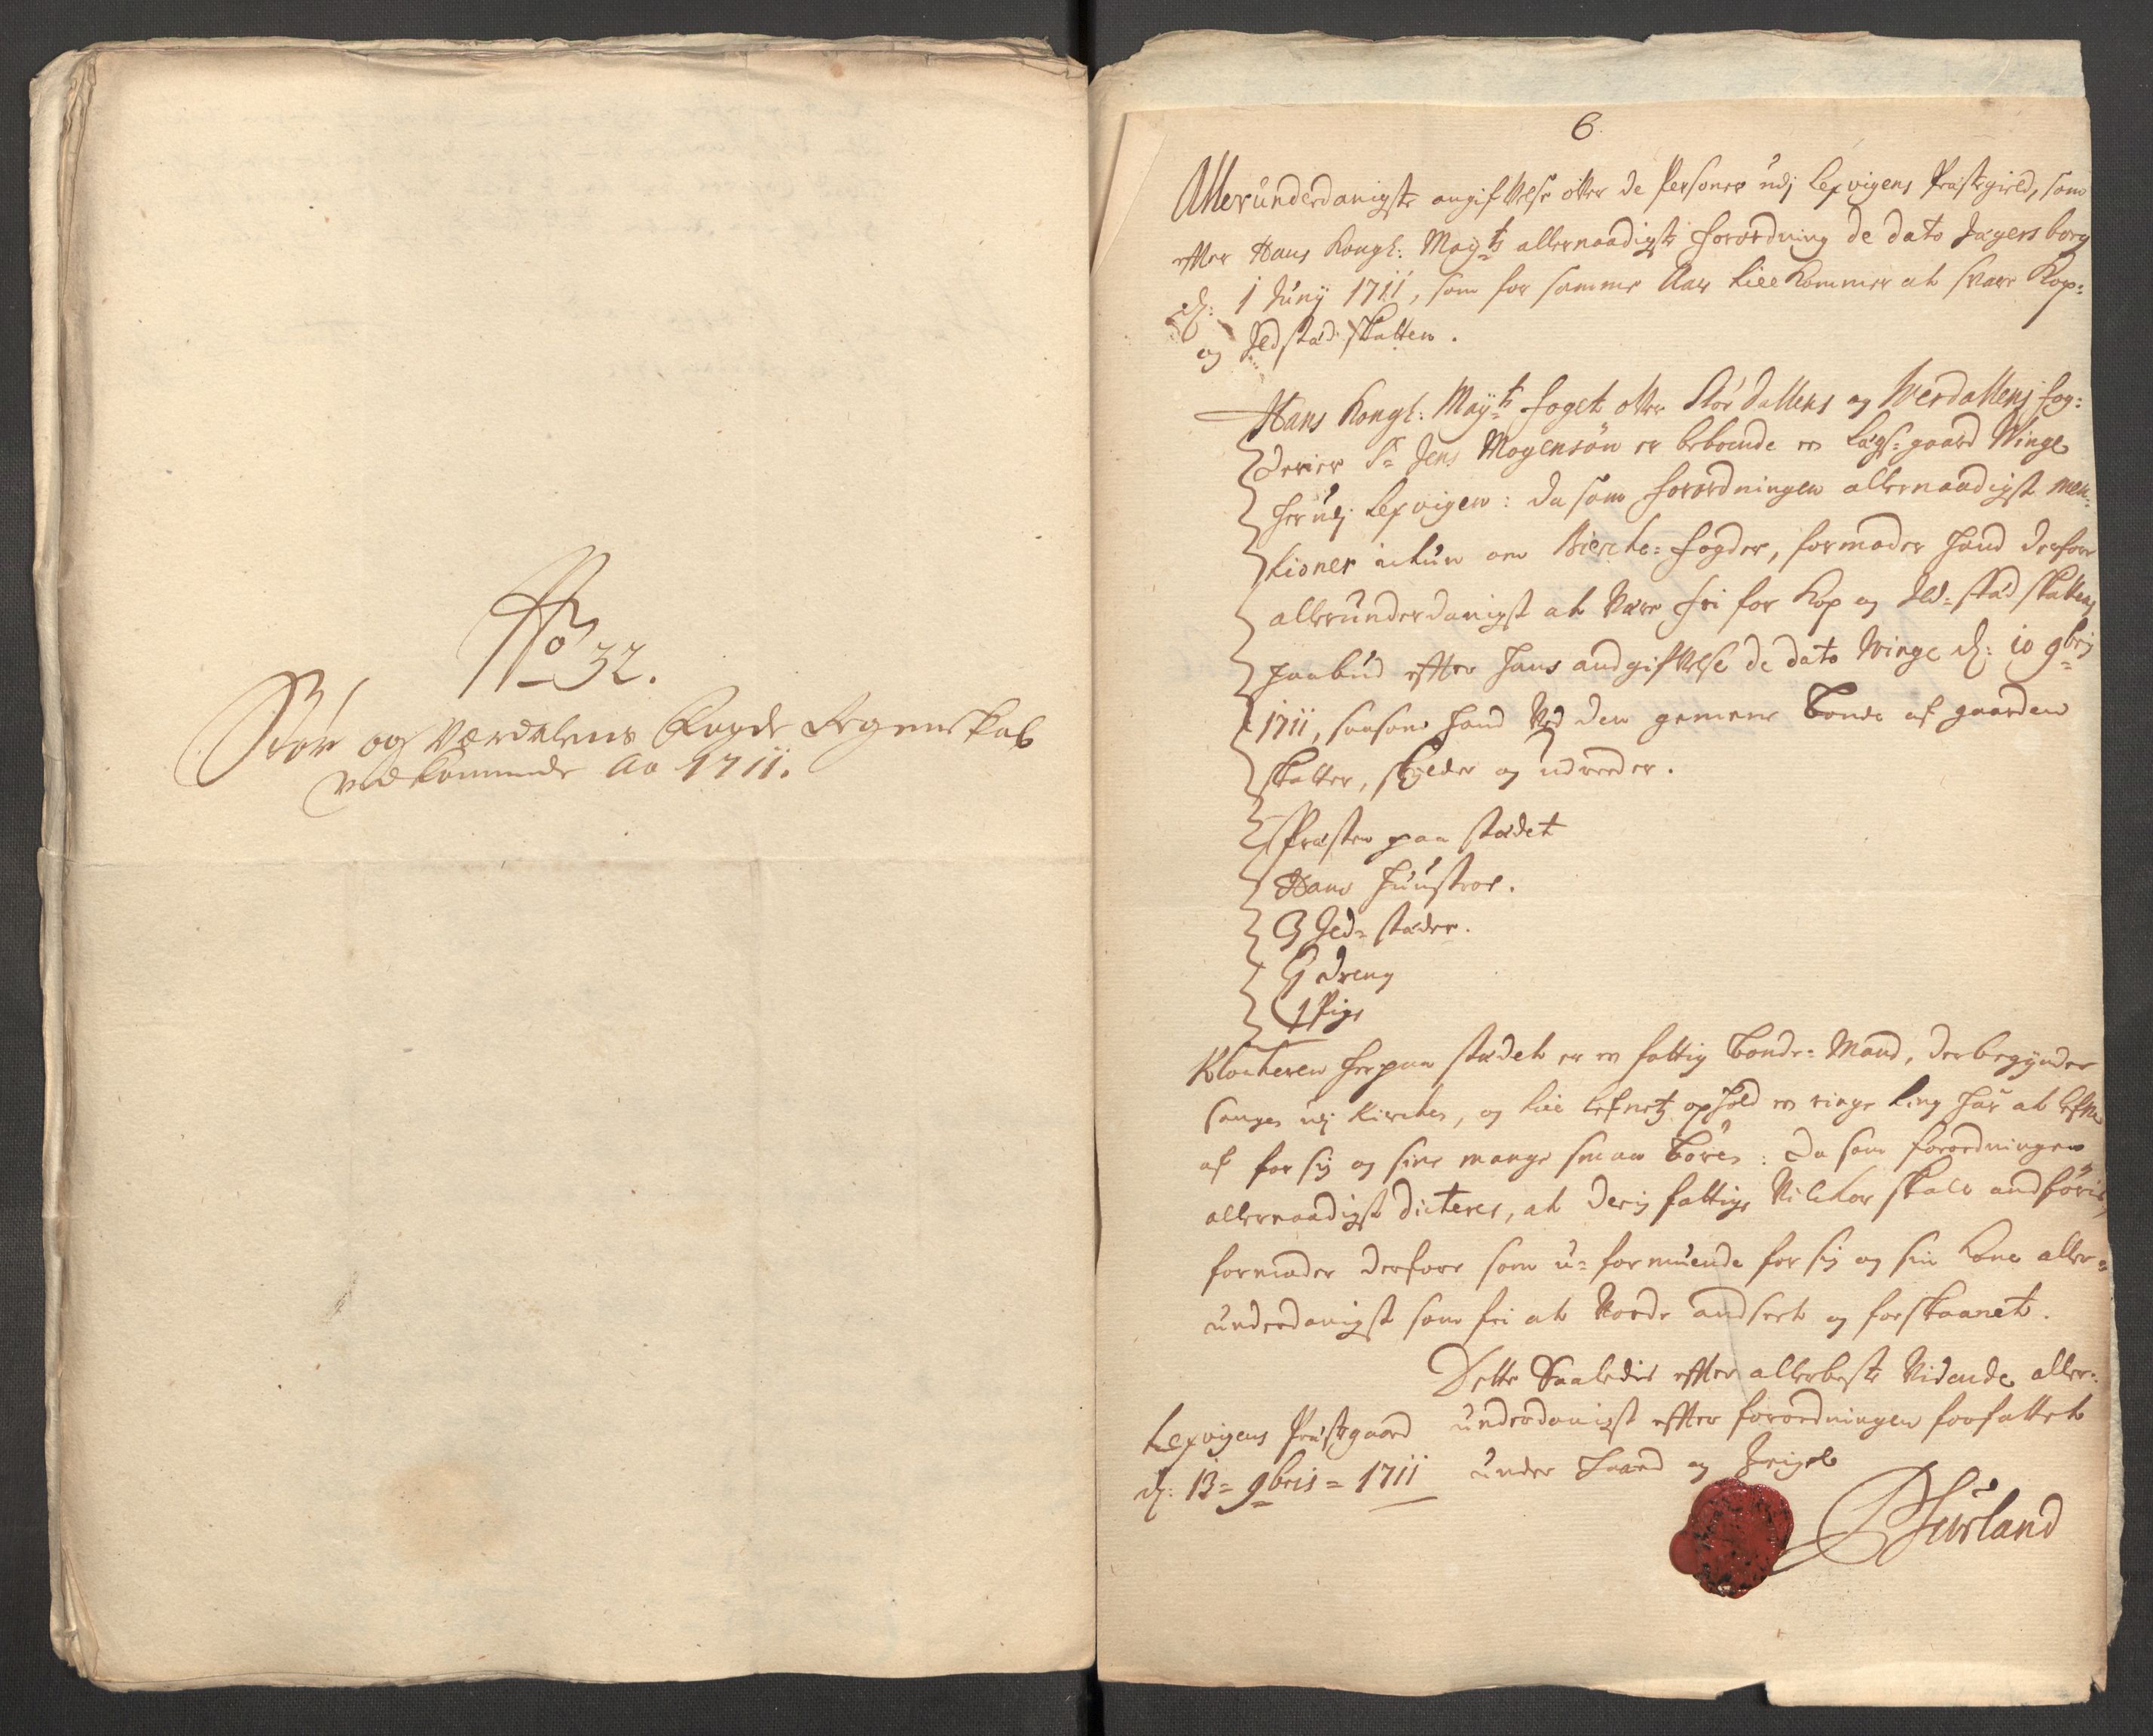 No 32.
Stør og Værdalens Fogde Regenskab
vedkommende Ao 1711.
6.
Allerunderdanigste angifvelse ofver de Personer udj Lexvigens Præstegield, som
efter Hans Kongl: Mayts allernaadigste forordning de dato Jægersborg
d: 1 Juny 1711, som for samme Aar till kommer at svare Kop-
og Ildstæd skatten.
Hans Kongl: Mayts foget ofver Størdallens og Werdallens fog-
derier Sr Jens Mogensøn er beboende en Laugs-gaard Winge
her udj Lexvigen: da som forordningen allernaadigst men-
tioner ickun om Bircke-fogder, formoder hand derfore
allerunderdanigst at være fri for Kop og Ild-stæd skattens
paabud efter hans andgifvelse de dato Winge d: 10 9brj
1711, saasom hand ved den gemene bonde af gaarden
skatter, skylder og udreeder.
Præsten paa stædet
Hans huustroe.
3 Ild-stæder.
1 dreng
1 Pige
Klockeren her paa stædet er en fattig bonde-Mand, der begynder
sangen udj Kircken, og till lifnetz ophold en ringe ting har at lefve
af for sig og sine mange smaa børen: Da som forordningen
allernaadigst dicterer, at deris fattige Vilckor skall andføris,
formoder derfore som u-formuende for sig og sin Kone aller-
underdanigst som fri at vorde andseet og forskaanet.
Dette Saaledis efter allerbeste Vidende aller-
underdanigst efter forordningen forfattet
under haand og Zeigel
Lexvigens Præstegaard
d: 13 = 9bris = 1711
Hersland